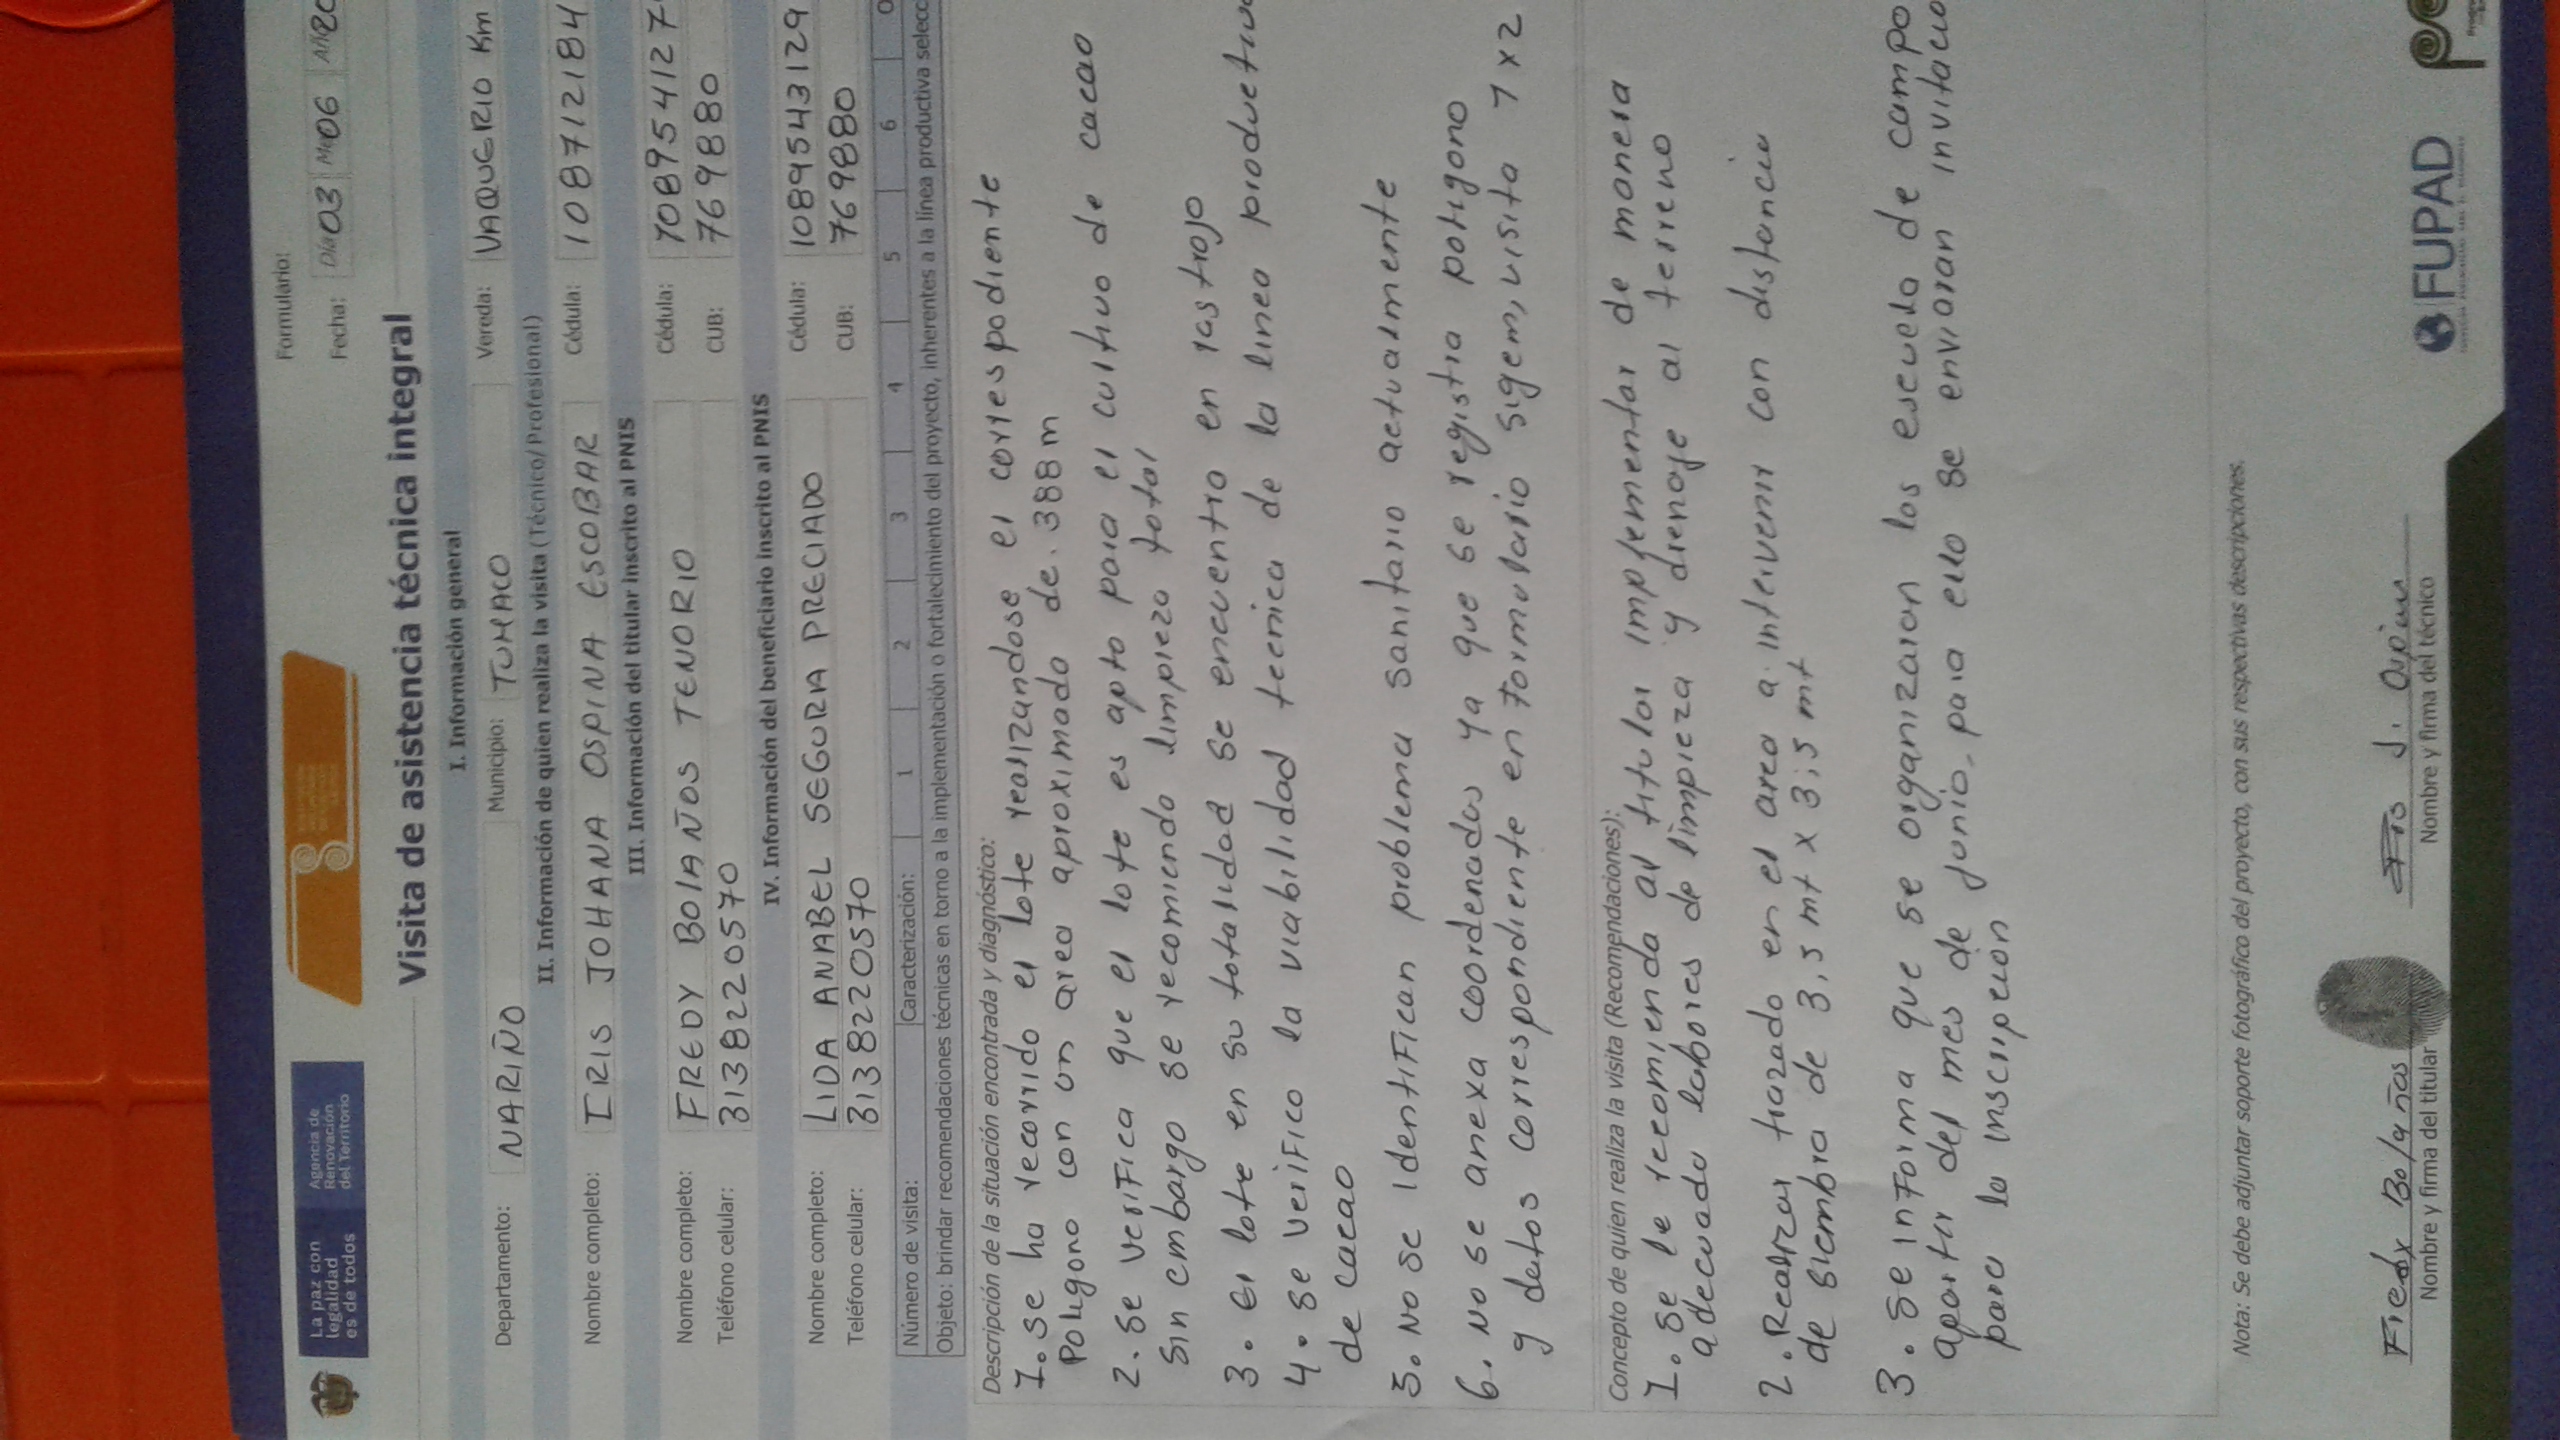 La paz con
legalidad
es de todos
Agencia de
Renovación
del Territorio
Formulario:
Fecha: Día 03 Mes 06
Visita de asistencia técnica integral
I. Información general
Departamento: NARIÑO Municipio: TUMACO Vereda: VAQUERIO Km
II. Información de quien realiza la visita (Técnico/Profesional)
Nombre completo: IRIS JOHANA OSPINA ESCOBAR Cédula: 108712184
III. Información del titular inscrito al PNIS
Nombre completo: FREDY BOlAÑOS TENORIO Cédula: 108954127
Teléfono celular: 3138220570 CUB: 7698880
IV. Información del beneficiario inscrito al PNIS
Nombre completo: LIDA ANABEL SEGURA PRECIADO Cédula: 1089543129
Teléfono celular: 3138220570 CUB: 7698880
Número de visita: Caracterización: 1 2 3 4 5 6
Objeto: brindar recomendaciones técnicas en torno a la implementación o fortalecimiento del proyecto, inherentes a la línea productiva selecc
Descripción de la situación encontrada y diagnóstico:
1. se ha recorrido el lote realizandose el correspodiente
Poligono con un area aproximado de. 388 m
2. se verifica que el lote es apto para el cultivo de cacao
sin embargo se recomiendo limpieza total
3. el lote en su totalidad se encuentro en rastrojo
4. se verifico la viabilidad tecnica de la linea productiva
de cacao
5. No se identifican problema sanitario actualmente
6. No se anexa coordenadas ya que se registra poligono
y datos correspondiente en formulario sigem, visita 1 x 2
Concepto de quien realiza la visita (Recomendaciones):
1. se le recomienda al titular implementar de manera
adecuada labores de limpieza y drenaje al terreno
2. Realizar trazado en el area a intervenir con distancia
de siembra de 3,5 mt x 3,5 mt
3. se informa que se organizaron los escuela de campo
apartir del mes de junio, para ello se envioran invitacio
para la inscripcion
Nota: Se debe adjuntar soporte fotográfico del proyecto, con sus respectivas descripciones.
Fredy Bolaños
Nombre y firma del titular
Iris J. Ospina
Nombre y firma del técnico
FUPAD